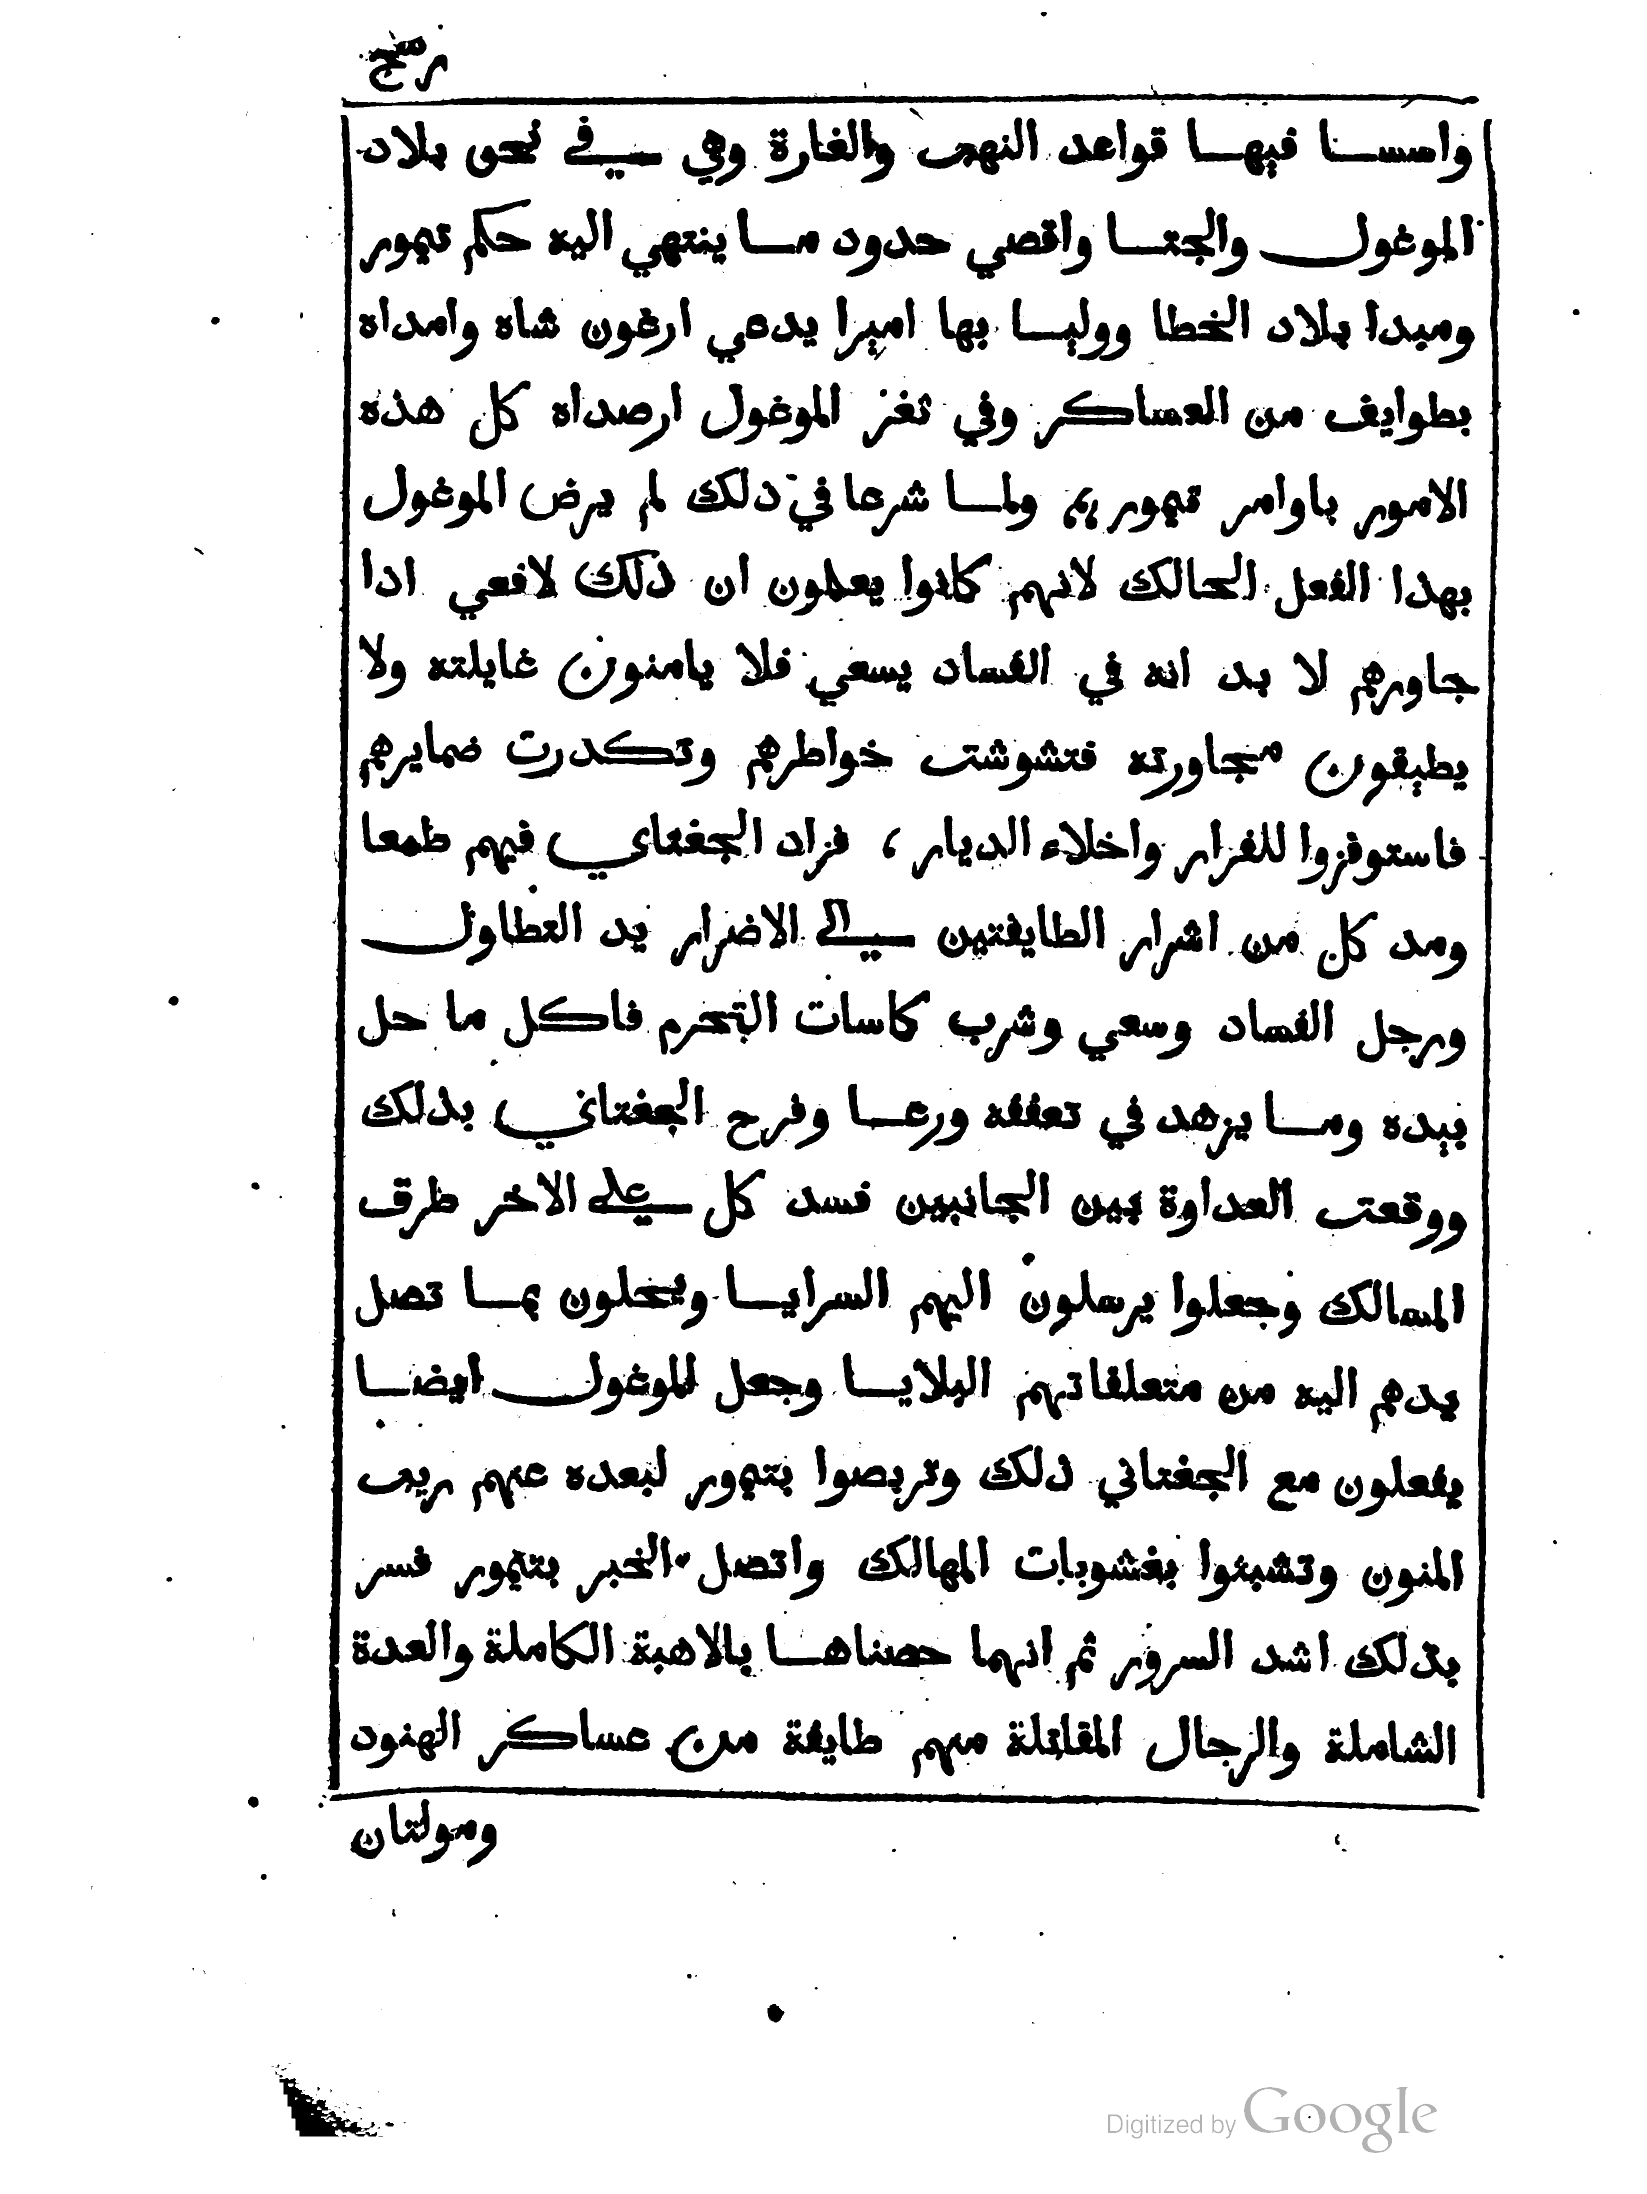 واسسنا فيها قواعد النهب والغارة وهي في نحو بلاد
الموغول والجتا واقصي حدود ما ينتهي اليه حكم تيمور
ومبدا بلاد الخطا ووليا بها اميرا يدعي ارغون شاه وامداه
بطوايف من العساكر وفي ثغر الموغول ارصداه كل هذه
الامور باوامر تيمور ولما شرعا في ذلك لم يرض الموغول
بهدا الفعل الحالك لانهم كانوا يعلمون ان ذلك لافعي ادا
جاورهم لا بد انه في الفساد يسعي فلا يامنون غايلته ولا
يطيقون مجاورته فتشوشت خواطرهم وتكدرت ضمايرهم
فاستوفزوا للفرار واخلاء الديار ، فزاد الجغتاي فيهم طمعا
ومد كل من اشرار الطايفتين الي الاضرار يد التطاول
ورجل الفساد وسعي وشرب كاسات التحرم فاكل ما حل
بيده وما يزهد في تعففه ورعا وفرح الجغتاني بذلك
ووقعت العداوة بين الجانبين فسد كل علي الاخر طرق
المسالك وجعلوا يرسلون اليهم السرايا ويحلون بما تصل
يدهم اليه من متعلقاتهم البلايا وجعل الموغول ايضا
يفعلون مع الجغتاني ذلك وتربصوا بتيمور لبعده عنهم ريب
المنون وتشبثوا بغشوبات المهالك واتصل الخبر بتيمور فسر
بذلك اشد السرور ثم انهما حصناها بالاهبة الكاملة والعدة
الشاملة والرجال المقاتلة منهم طايفة من عساكر الهنود
ومولتان
Digitized by Google